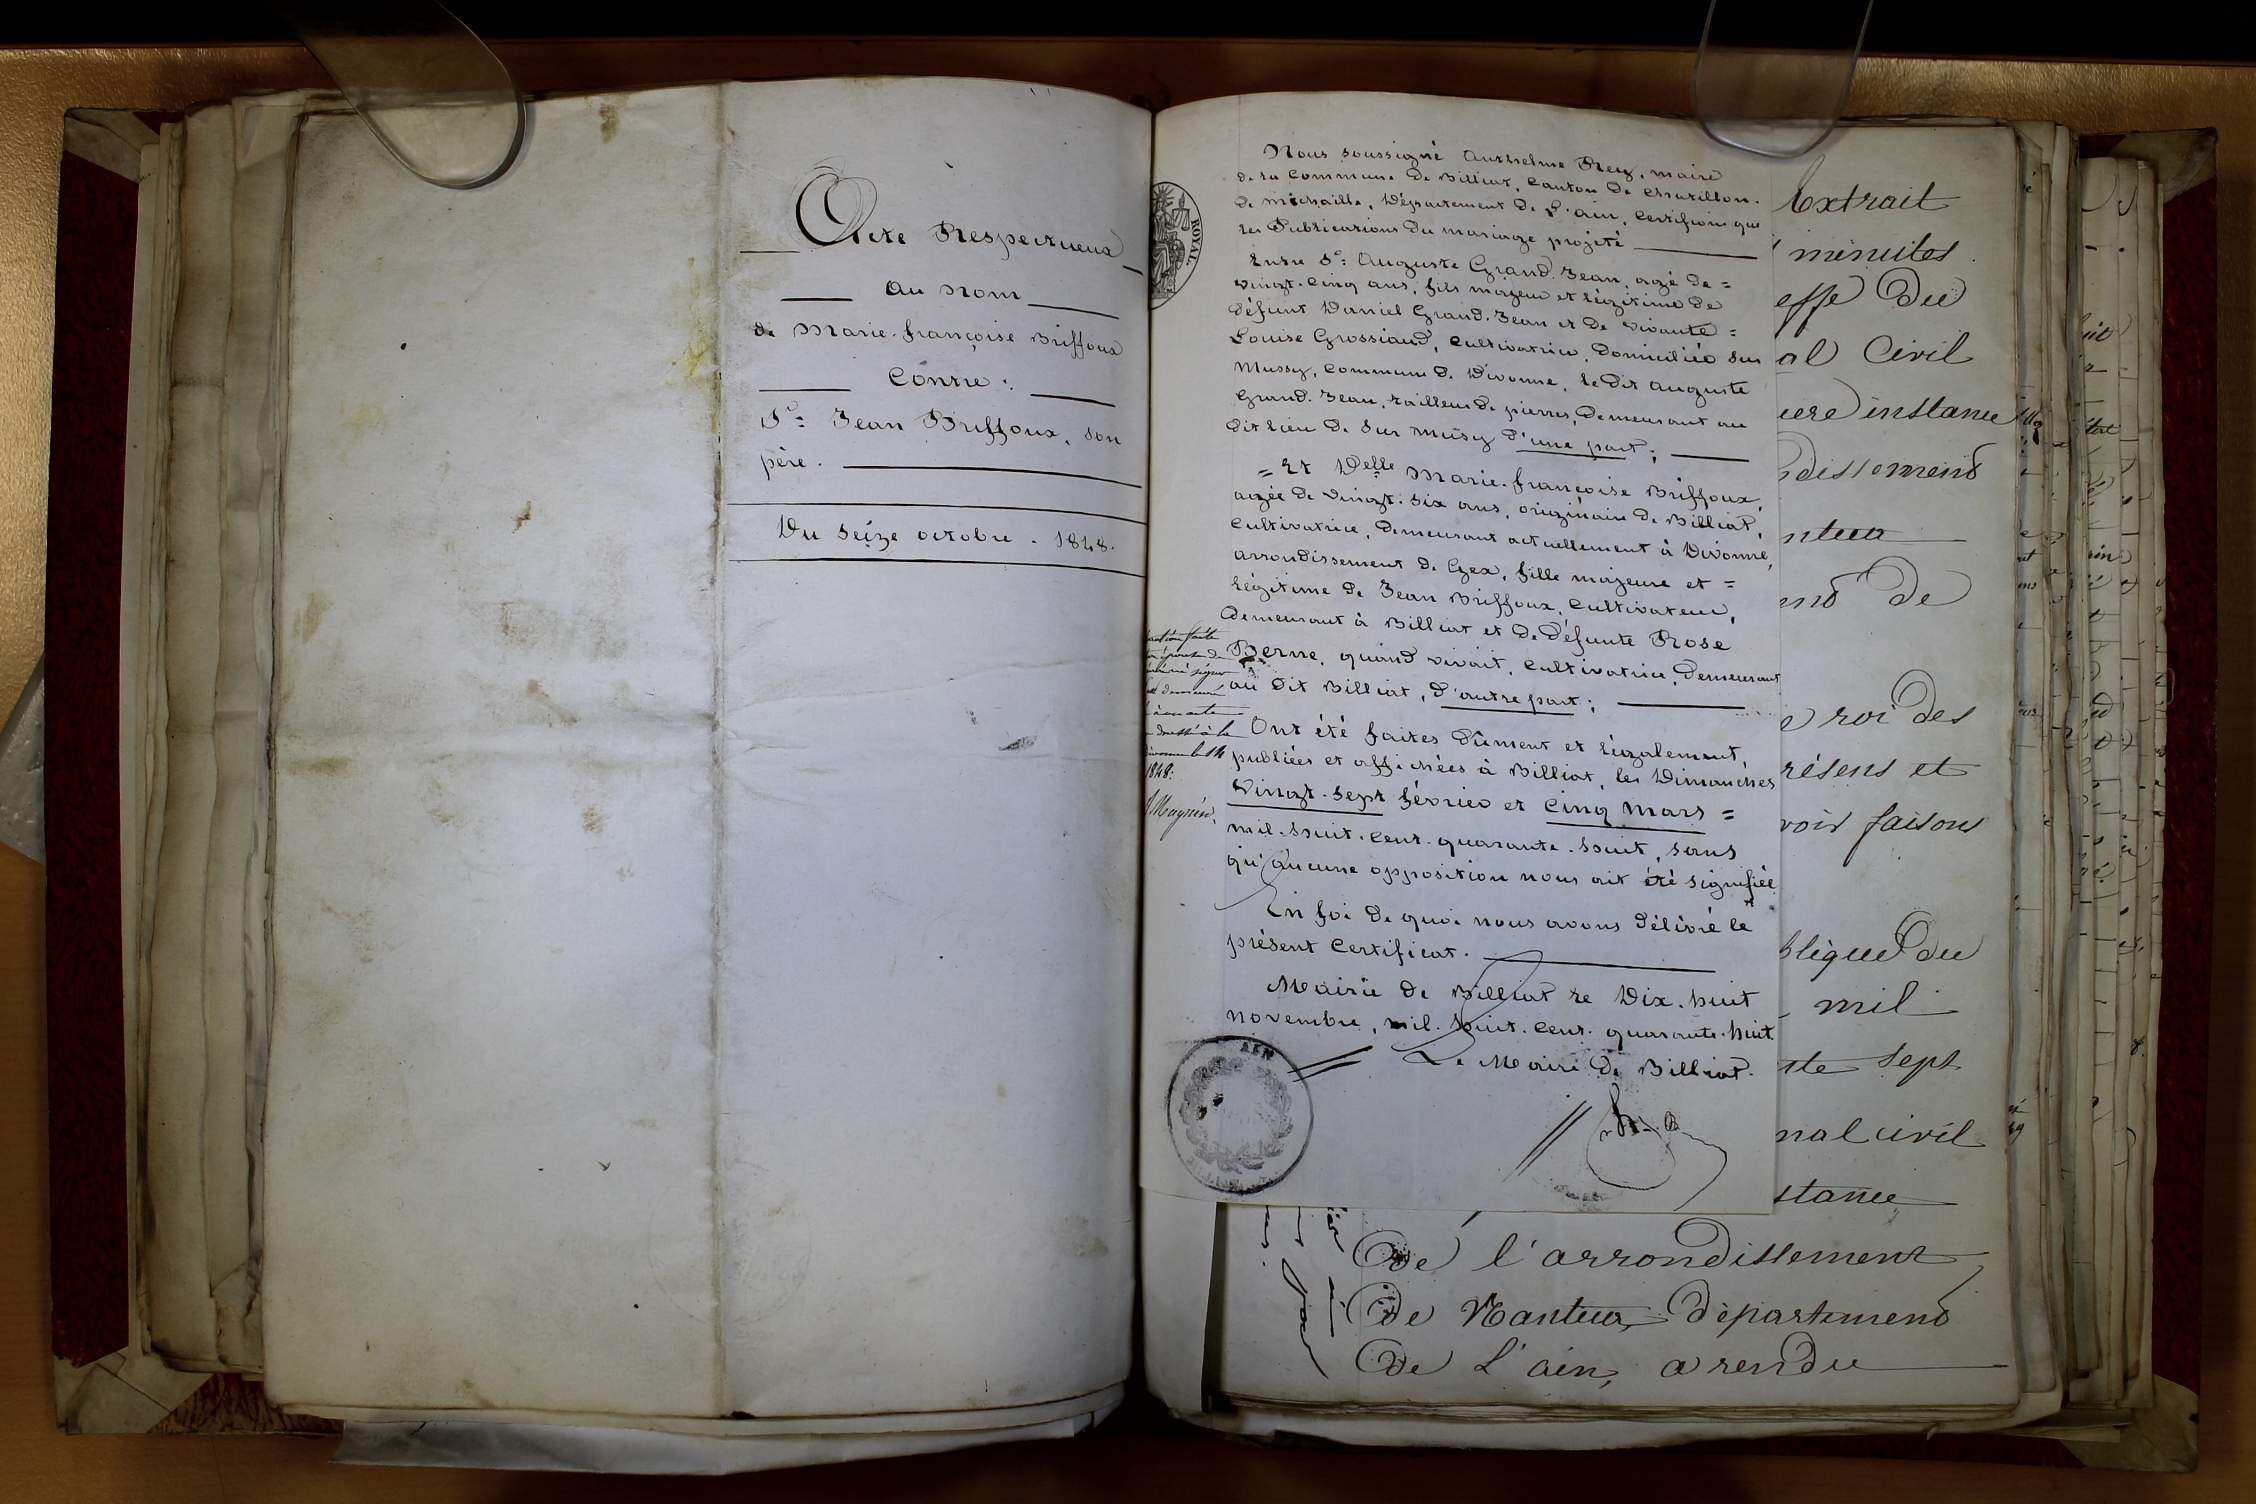 Acte Respectueux
au nom
de Marie-françoise Briffoux
Contre :
Sr. Jean Briffoux, son
père.
Du Seize octobre - 1848.
ROYAL
Nous soussigné Anthelme Rey, maire
de la Commune de Billiat, Canton de Chatillon-
de michaille, Département de l'ain, Certifions que
les Publications du mariage projeté
Entre Sr. Auguste Grand-Jean, agé de =
vingt-cinq ans, fils majeur et légitime de
défunt Daniel Grand-Jean et de vivante =
Louise Grossiaud, Cultivatrice, domiciliée sur
Mussy, Commune de Divonne, le dit Auguste
Grand-Jean, tailleur de pierres, demeurant au
dit lieu de sur Mussy d'une part ;
= Et Delle Marie-françoise Briffoux,
agée de vingt-six ans, originaire de Billiat,
Cultivatrice, demeurant actuellement à Divonne,
arrondissement de Gex, fille majeure et =
légitime de Jean Briffoux, Cultivateur,
demeurant à Billiat et de défunte Rose
Berne, quand vivait, Cultivatrice, demeurant
au dit Billiat, d'autre part ;
Ont été faites dûment et légalement,
publiées et affichées à Billiat, les Dimanches
Vingt-sept février et Cinq mars =
mil-huit-cent-quarante-huit, sans
qu'aucune opposition nous ait été signifiée
En foi de quoi nous avons délivré le
présent Certificat.
Mairie de Billiat le Dix-huit
novembre, mil-huit-cent-quarante-huit.
Le Maire de Billiat.
faite
de
signer
acte
à la
le 14
1848.
Magnin.
AIN
Extrait
minutes
effe du
al Civil
iere instance
dissement
ntua
nd de
roi des
résens et
voir faisons
blique du
mil
nte sept
nal civil
stance
de l'arrondissement
de Nantua, département
de L'ain, a rendu